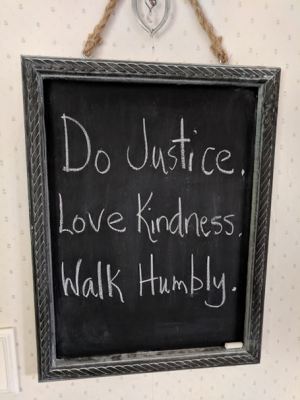 Do Justice.
Love Kindness.
Walk Humbly.